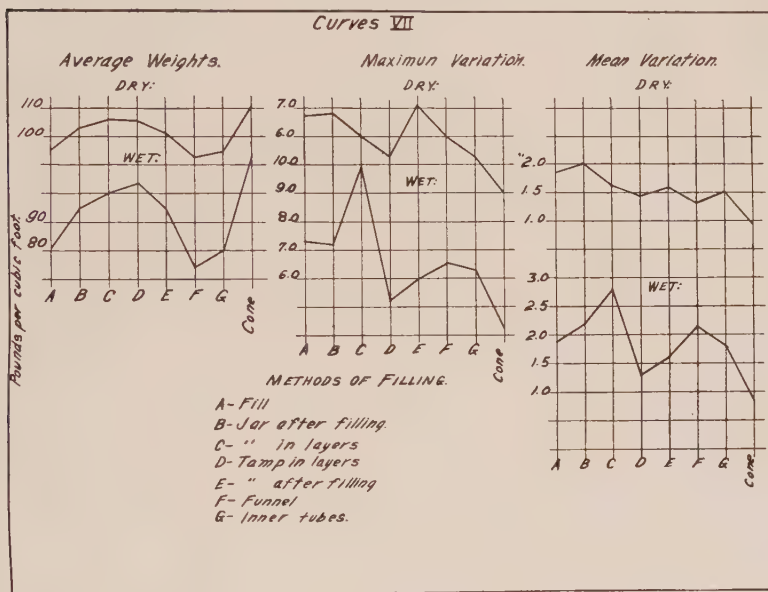 Curves VII
Average Weights.
DRY:
110
100
WET:
90
80
Pounds per cubic foot
A B C D E F G Cone
Maximun Variation.
DRY:
7.0
6.0
10.0
WET:
9.0
8.0
7.0
6.0
A B C D E F G Cone
Mean Variation.
DRY:
"2.0
1.5
1.0
3.0
WET:
2.5
2.0
1.5
1.0
A B C D E F G Cone
METHODS OF FILLING.
A- Fill
B- Jar after filling.
C- " in layers
D- Tamp in layers
E- " after filling
F- Funnel
G- Inner tubes.